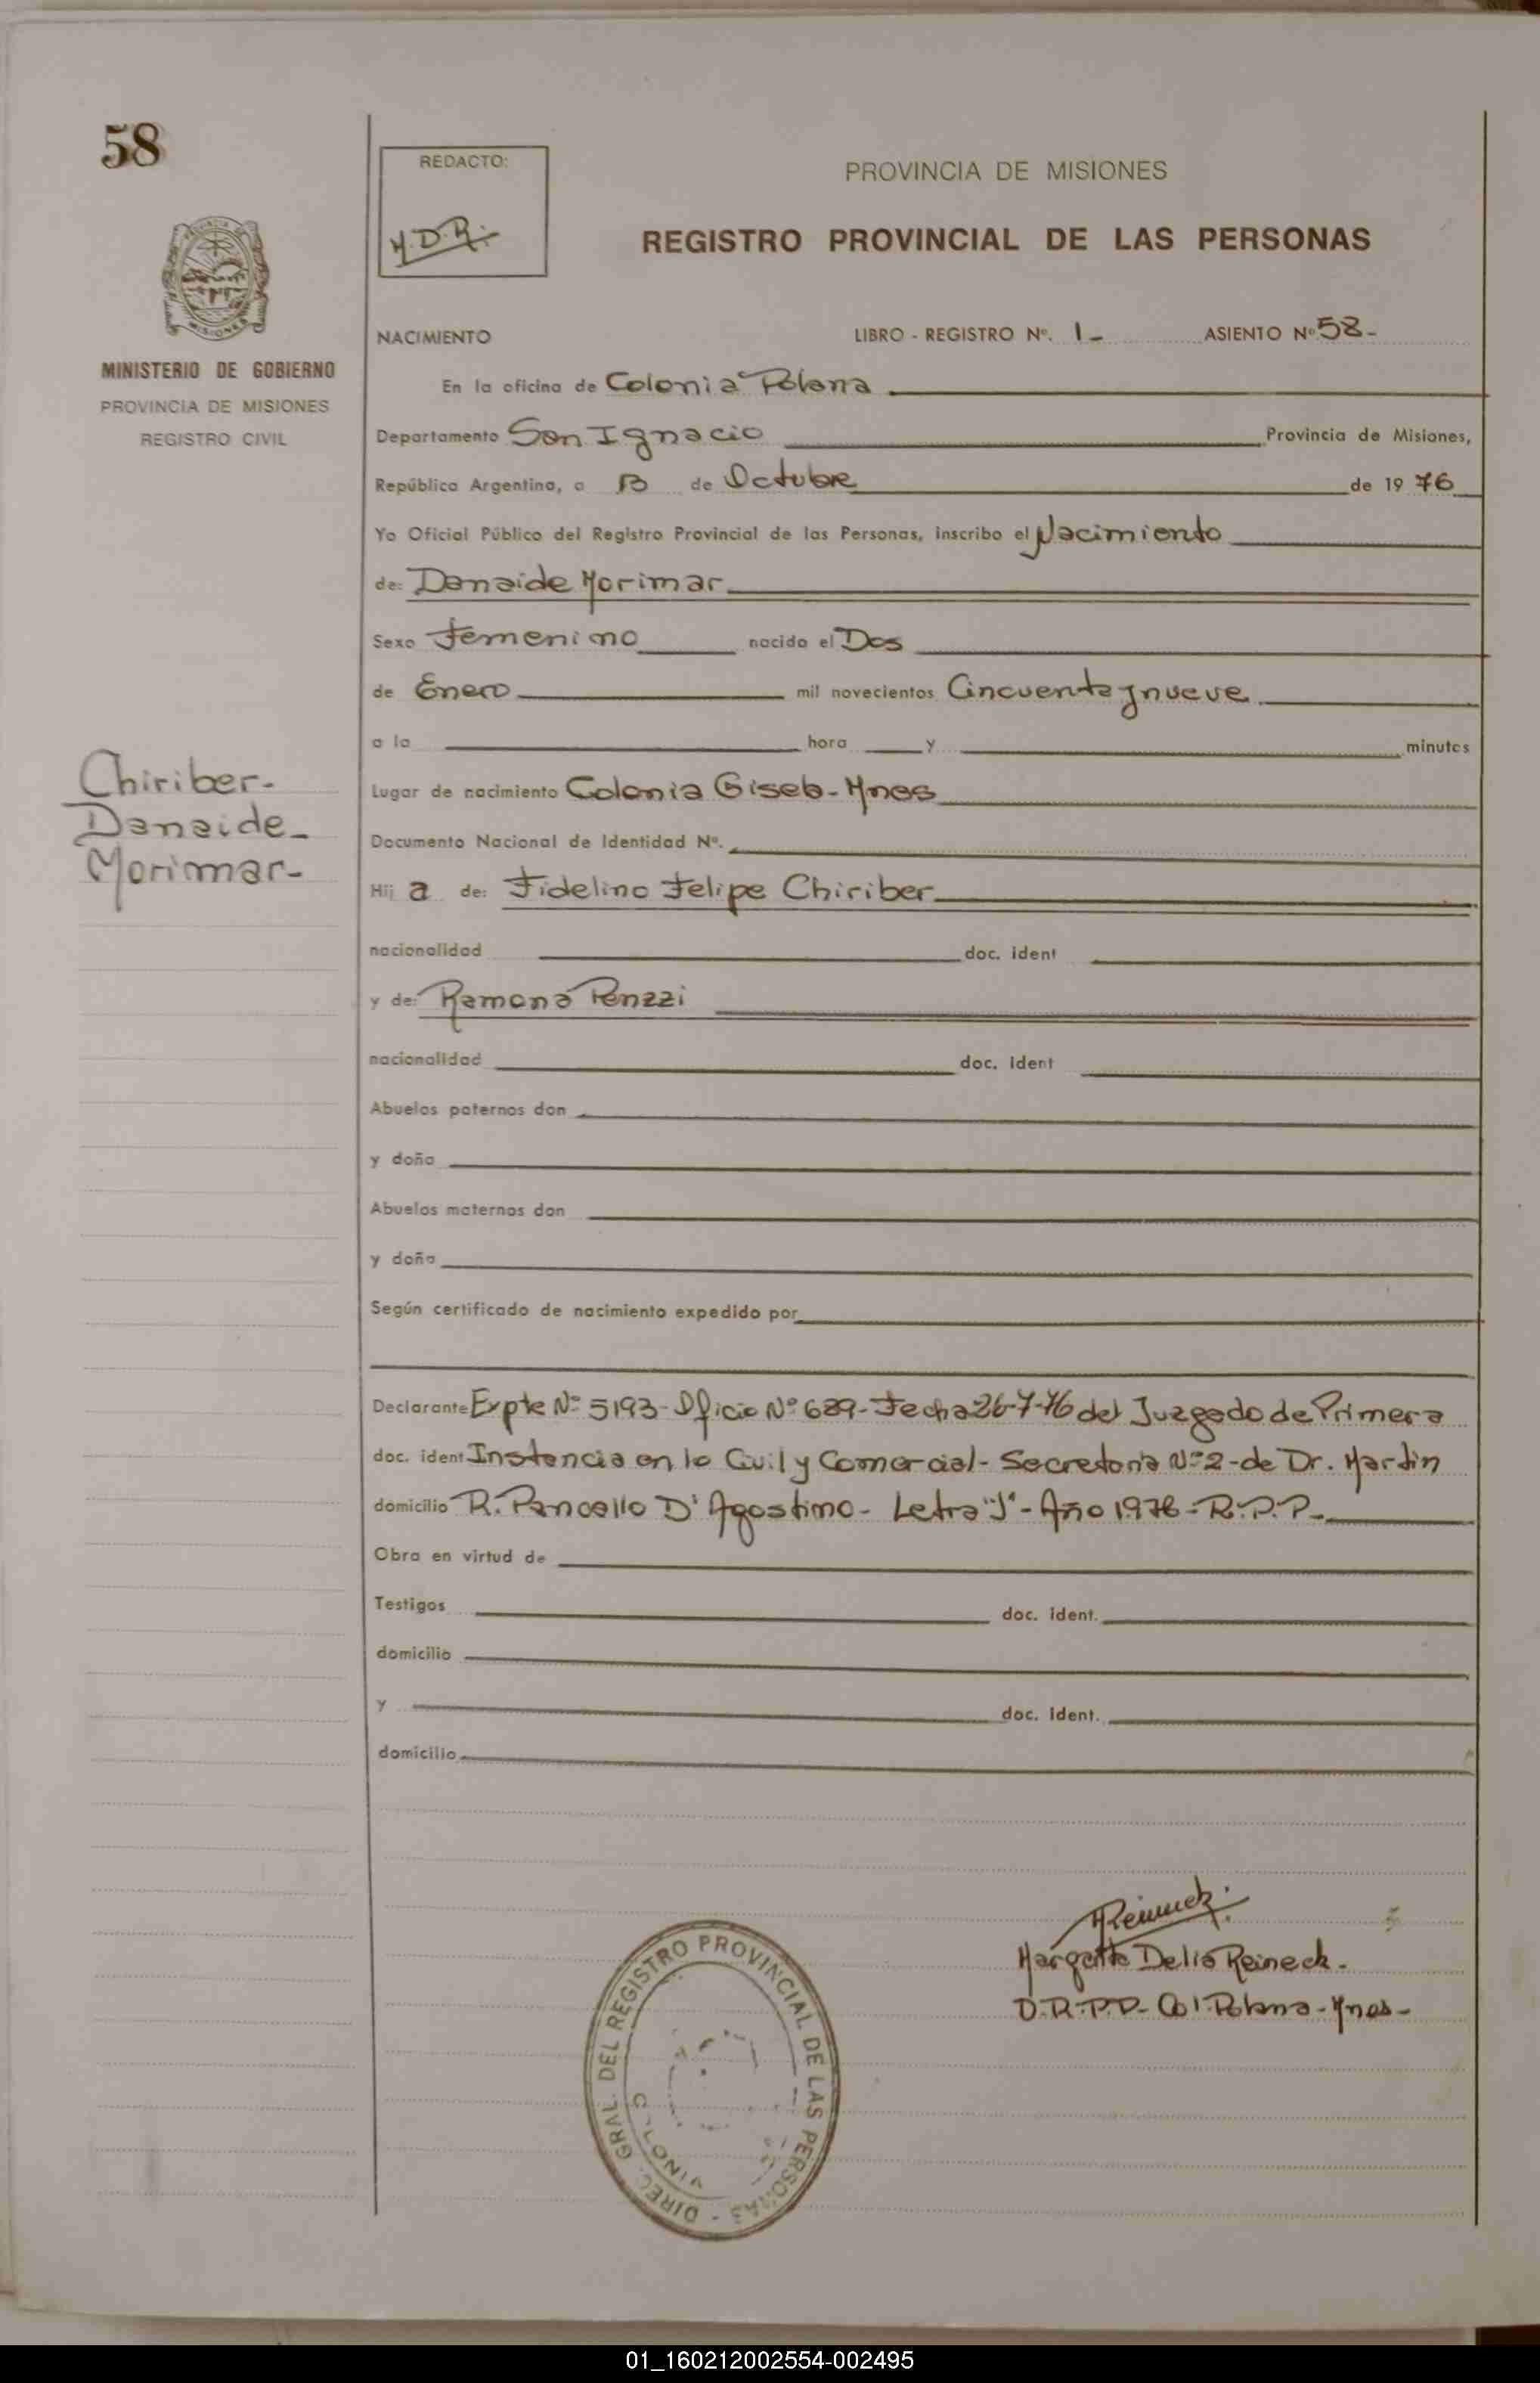 58
REDACTO:
M.D.R.
PROVINCIA DE MISIONES
REGISTRO PROVINCIAL DE LAS PERSONAS
MINISTERIO DE GOBIERNO
PROVINCIA DE MISIONES
REGISTRO CIVIL
NACIMIENTO LIBRO - REGISTRO Nº. 1- ASIENTO Nº 58-
En la oficina de Colonia Polana
Departamento San Ignacio Provincia de Misiones,
República Argentina, a 13 de Octubre de 19 76
Yo Oficial Público del Registro Provincial de las Personas, inscribo el Nacimiento
de: Danaide Morimar
Sexo Femenino nacido el Dos
de Enero mil novecientos Cincuenta y nueve
a la hora y minutos
Chiriber-
Danaide-
Morimar-
Lugar de nacimiento Colonia Gisela-Mnes
Documento Nacional de Identidad Nº.
Hij a de: Fidelino Felipe Chiriber
nacionalidad doc. ident
y de: Ramona Penzzi
nacionalidad doc. ident
Abuelos paternos don
y doña
Abuelos maternos don
y doña
Según certificado de nacimiento expedido por
Declarante Expte Nº 5193-Oficio Nº 689-Fecha 26-7-76 del Juzgado de Primera
doc. ident Instancia en lo Civil y Comercial- Secretaria Nº 2-de Dr. Martin
domicilio R. Pancello D'Agostino- Letra "J"-Año 1976-R.P.P.-
Obra en virtud de
Testigos doc. ident.
domicilio
y doc. ident.
domicilio
Margarita Delia Reineck.
D.R.P.P- Col. Polana-Mnes-
DIREC. GRAL. DEL REGISTRO PROVINCIAL DE LAS PERSONAS -
COLONIA
01_160212002554-002495